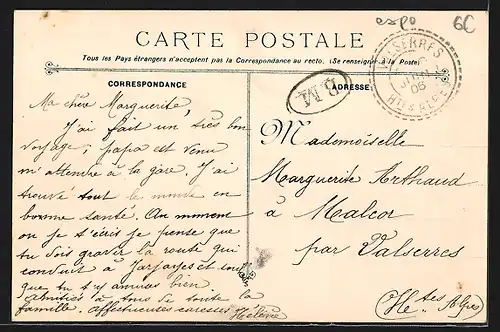 expo
6C
CARTE POSTALE
Tous les Pays étrangers n'acceptent pas la Correspondance au recto. (Se renseigner à la Poste)
CORRESPONDANCE
ADRESSE
B.M.
VALSERRES
JUIN
08
Htes ALPES
Ma chère Marguerite,
J'ai fait un très bon
voyage, papa est venu
m'attendre à la gare. J'ai
trouvé tout le monde en
bonne santé. Au moment
où je t'écris je pense que
tu dois gravir la route qui
conduit à Jarjayes et
que tu t'y amuses bien
amitiés à tous de toute la
famille. affectueuses caresses
Hélène
Mademoiselle
Marguerite Arthaud
à Malcor
par Valserres
(Htes Alpes)